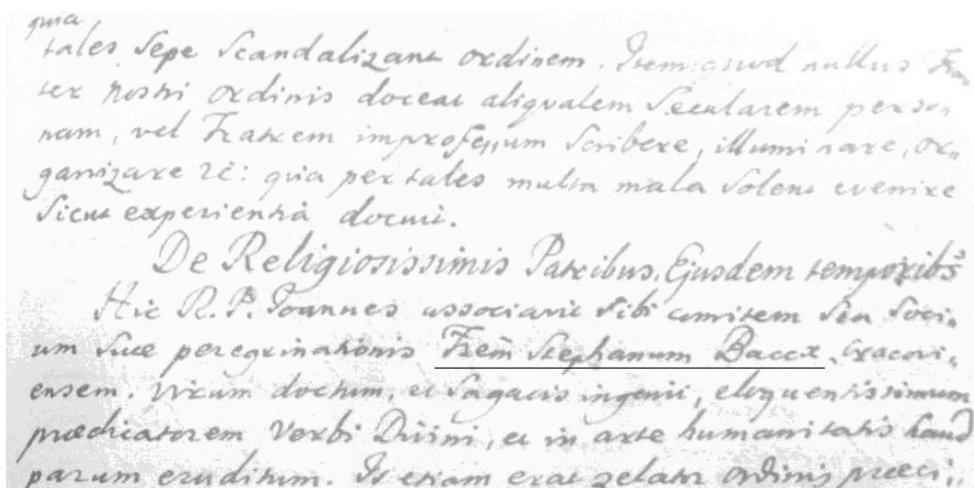 quia
tales sepe scandalizant ordinem. Item: quod nullus Fra„
ter nostri ordinis doceat aliqualem secularem perso„
nam, vel Fratrem improfessum scribere, illuminare, or„
ganizare &c: quia per tales multa mala solent evenire
sicut experientia docuit.
De Religiosissimis Patribus, Ejusdem temporibs
Hic R. P. Joannes associavit sibi comitem seu soci„
um suae peregrinationis Frem Stephanum Baccz, Cracovi„
ensem. virum doctum, et sagacis ingenii, eloquentissimum
praedicatorem Verbi Divini, et in arte humanitatis haud
parum eruditum. Is etiam erat zelator ordinis praeci„